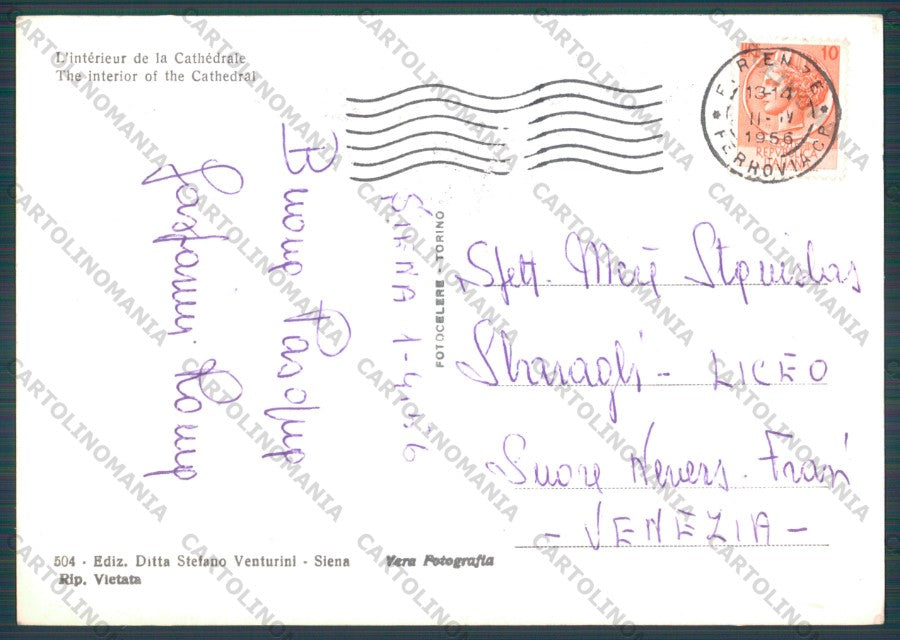 L'intérieur de la Cathédrale
The interior of the Cathedral
LIRE 10
FIRENZE
13-14
11-IV
1956
FERROVIA C.P.
REPUBBLICA
ITALIANA
Buona Pasqua
SIENA 1-4-56
FOTOCELERE - TORINO
Spett.
LICEO
Suore Nevers. Frari
- VENEZIA -
504 - Ediz. Ditta Stefano Venturini - Siena
Rip. Vietata
Vera Fotografia
CARTOLINOMANIA